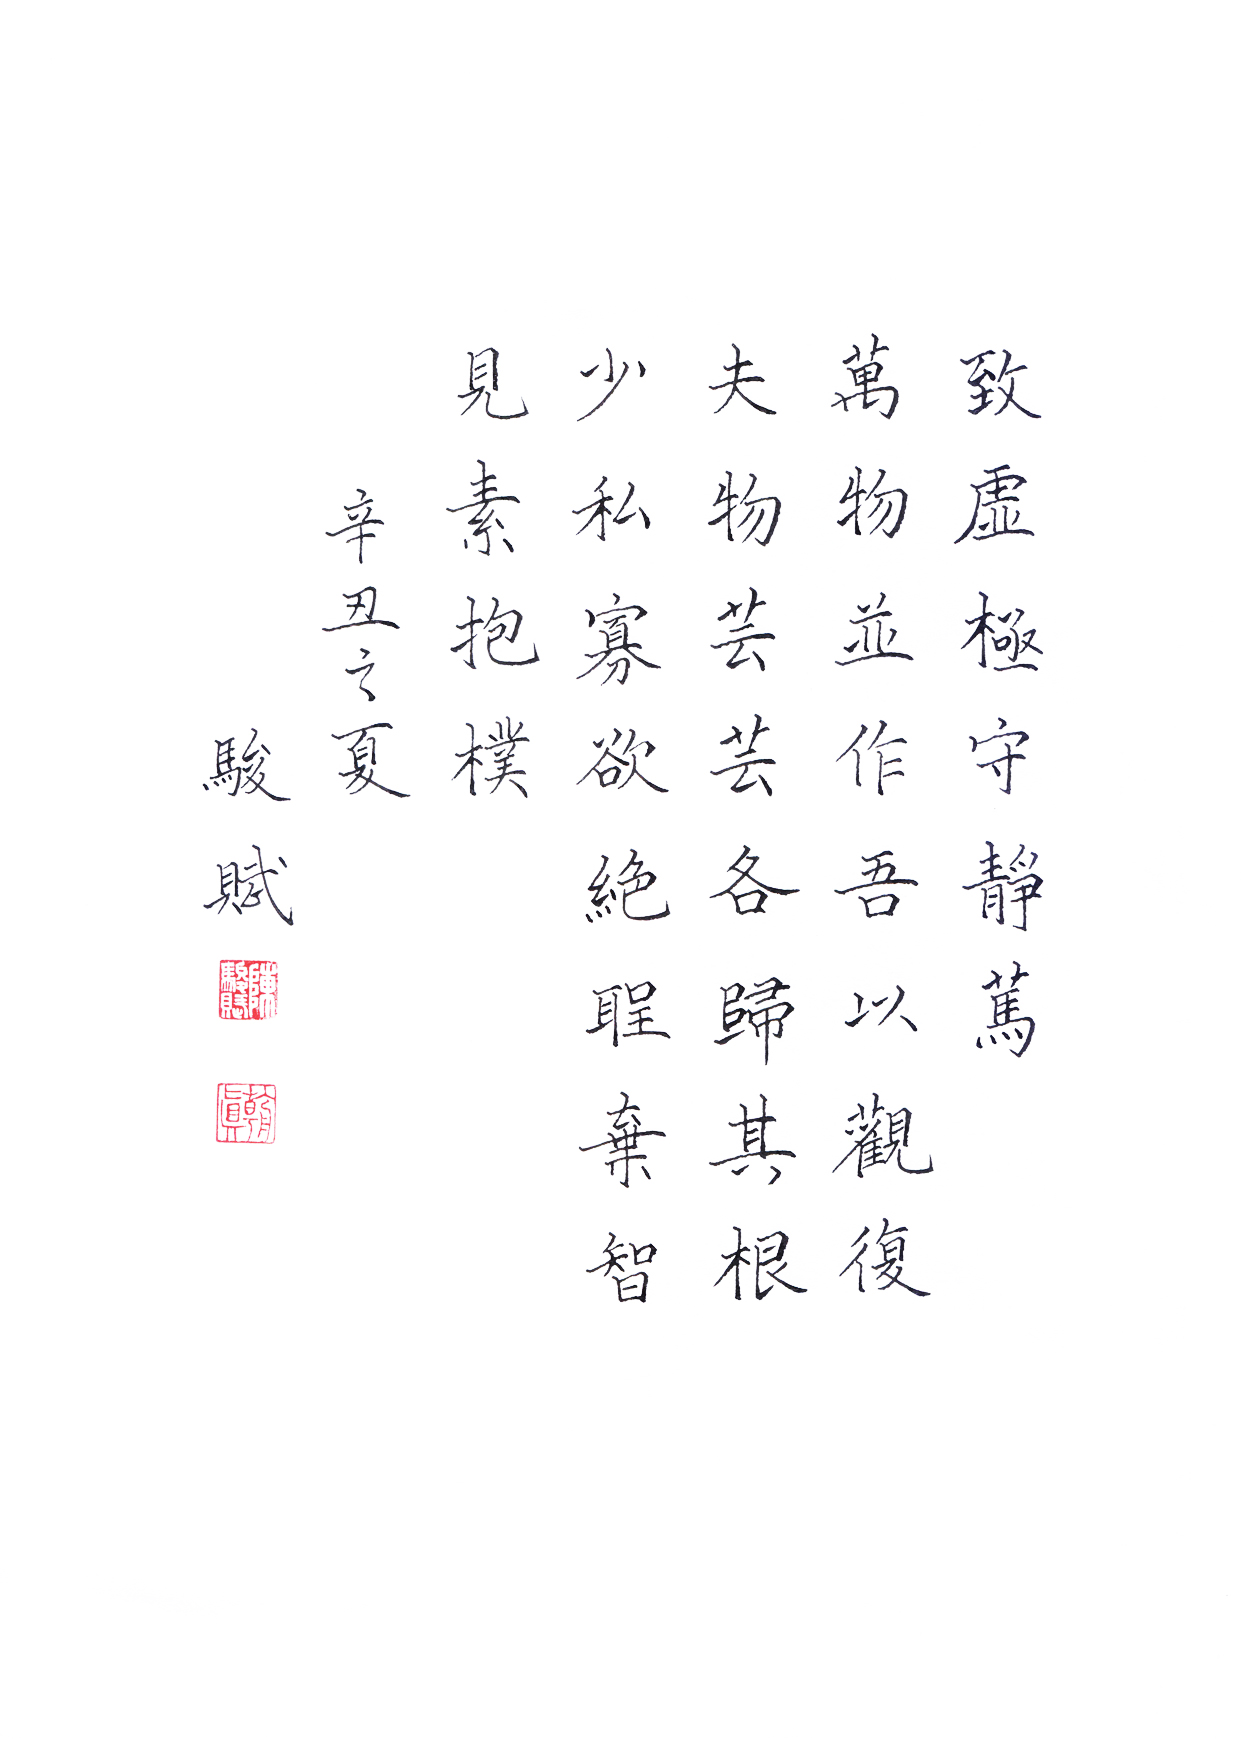 致虛極守靜篤
萬物並作吾以觀復
夫物芸芸各歸其根
少私寡欲絕聖棄智
見素抱樸
辛丑之夏
駿賦
陳駿賦